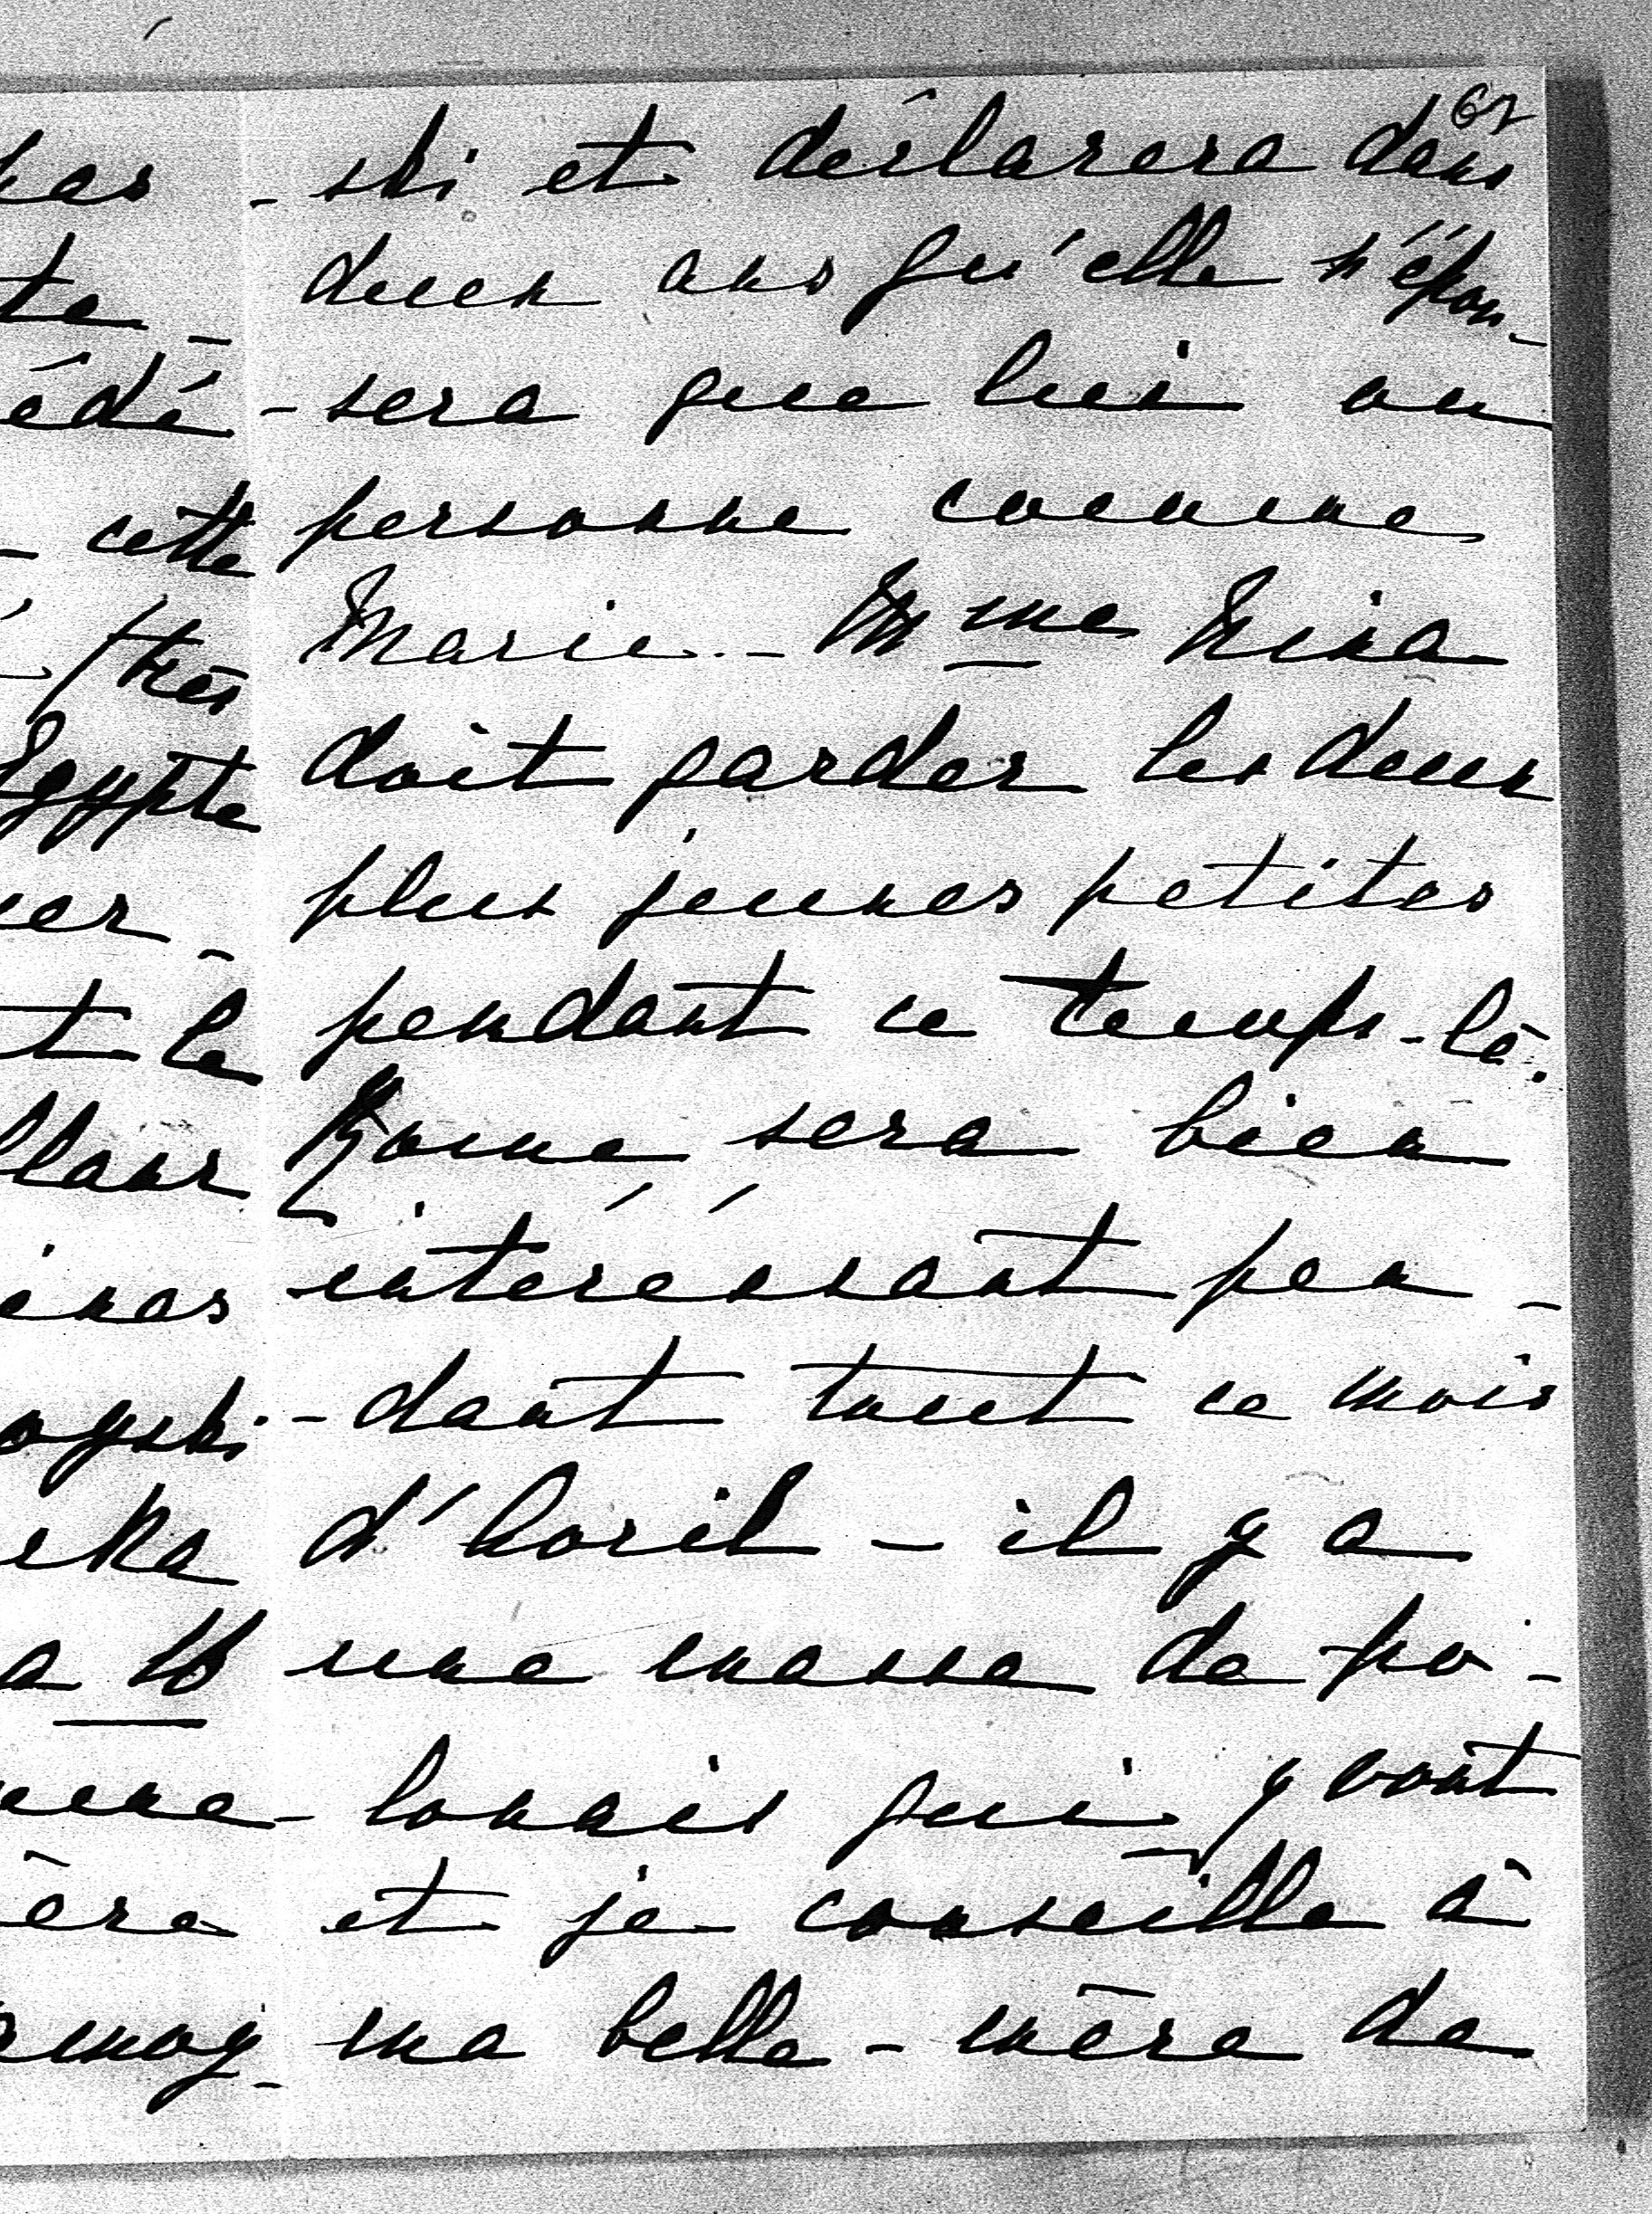 62
- ski et déclarera dans
deux ans qu'elle n'épou-
- sera que lui ou
personne comme
Marie. - Mme Nina
doit garder les deux
plus jeunes petites
pendant ce temps-là.
Rome sera bien
intéréssant pen-
- dant tout ce mois
d'Avril - il y a
une masse de po-
- lonais qui y vont
et je conseille à
ma belle-mère de
cette
très
Egypte